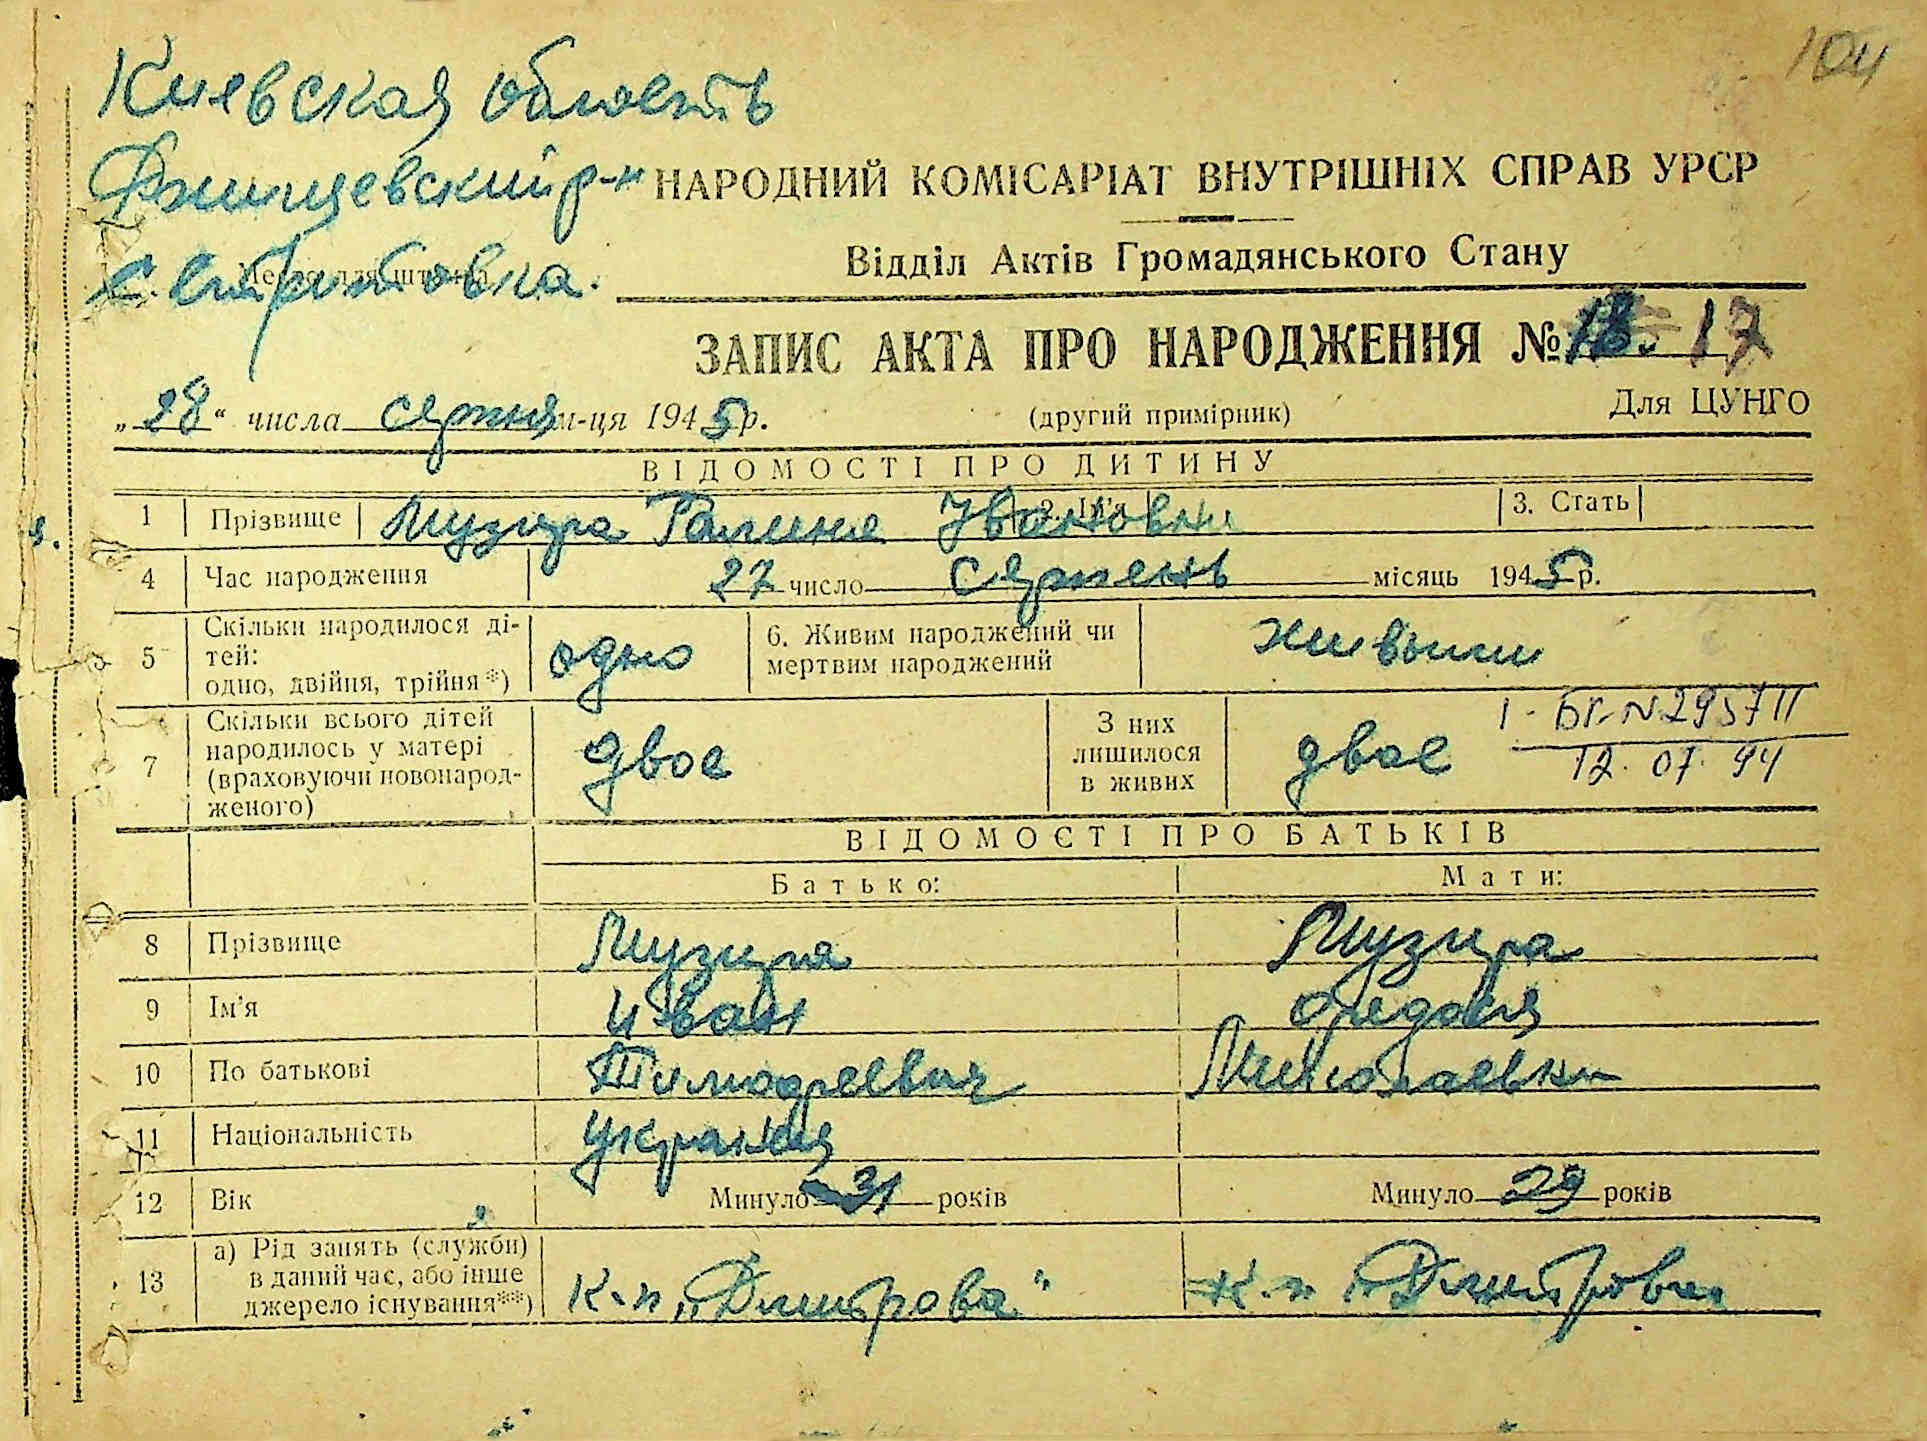 104
Киевская область
Ржищевский р-н
НАРОДНИЙ КОМІСАРІАТ ВНУТРІШНІХ СПРАВ УРСР
Відділ Актів Громадянського Стану
с. Стритовка.
ЗАПИС АКТА ПРО НАРОДЖЕННЯ № 18. 17
„28“ числа серпня м-ця 1945 р. (другий примірник) Для ЦУНГО
ВІДОМОСТІ ПРО ДИТИНУ
1 Прізвище Музира 2. Ім'я Галина Ивановна 3. Стать
4 Час народження 27 число серпень місяць 1945 р.
5 Скільки народилося дітей: одно, двійня, трійня*) одно 6. Живим народжений чи мертвим народжений живыми
7 Скільки всього дітей народилось у матері (враховуючи новонародженого) двое З них лишилося в живих двое
I-БК-N 295711
12.07.94
ВІДОМОСТІ ПРО БАТЬКІВ
Батько: Мати:
8 Прізвище Музира Музира
9 Ім'я Иван Федося
10 По батькові Тимофеевич Николаевна
11 Національність
12 Вік Минуло 31 років Минуло 29 років
13 а) Рід занять (служби) в даний час, або інше джерело існування**) К-п „Димитрова“ К-п „Димитрова